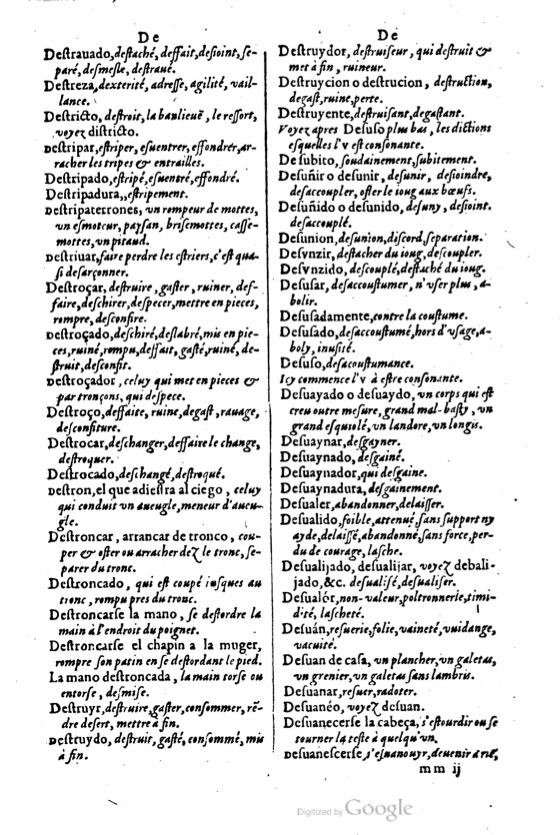 De
Destrauado, destaché, deffait, desioint, se-
paré, desmeslé, destraué.
Destreza, dexterité, adresse, agilité, vail-
lance.
Destricto, destroit, la banlieuë, le ressort,
voyez districto.
Destripar, estriper, esuentrer, effondrer, ar-
racher les tripes & entrailles.
Destripado, estripé, esuentré, effondré.
Destripadura, estripement.
Destripaterrones, vn rompeur de mottes,
vn esmoteur, paysan, brisemottes, casse-
mottes, vn pitaud.
Destriuar, faire perdre les estriers, c'est qua-
si desarçonner.
Destroçar, destruire, gaster, ruiner, des-
faire, deschirer, despecer, mettre en pieces,
rompre, desconfire.
Destroçado, deschiré, deslabré, mis en pie-
ces, ruiné, rompu, deffait, gasté, ruiné, de-
struit, desconfit.
Destroçador, celuy qui met en pieces &
par tronçons, qui despece.
Destroço, deffaite, ruine, degast, rauage,
desconfiture.
Destrocar, deschanger, deffaire le change,
destroquer.
Destrocado, deschangé, destroqué.
Destron, el que adiestra al ciego, celuy
qui conduit vn aueugle, meneur d'aueu-
gle.
Destroncar, arrancar de tronco, cou-
per & oster ou arracher dez le tronc, se-
parer du tronc.
Destroncado, qui est coupé iusques au
tronc, rompu pres du tronc.
Destroncarse la mano, se destordre la
main à l'endroit du poignet.
Destroncarse el chapin a la muger,
rompre son patin en se destordant le pied.
La mano destroncada, la main torse ou
entorse, desmise.
Destruyr, destruire, gaster, consommer, rē-
dre desert, mettre à fin.
Destruydo, destruit, gasté, consommé, mis
à fin.
De
Destruydor, destruiseur, qui destruit &
met à fin, ruineur.
Destruycion o destrucion, destruction,
degast, ruine, perte.
Destruyente, destruisant, degastant.
Voyez apres Desuso plus bas, les dictions
esquelles l'v est consonante.
De subito, soudainement, subitement.
Desuñir o desunir, desunir, desioindre,
desaccoupler, oster le ioug aux bœufs.
Desuñido o desunido, desuny, desioint.
desaccouplé.
Desunion, desunion, discord, separation.
Desvnzir, destacher du ioug, descoupler.
Desvnzido, descouplé, destaché du ioug.
Desusar, desaccoustumer, n'vser plus, a-
bolir.
Desusadamente, contre la coustume.
Desusado, desaccoustumé, hors d'vsage, a-
boly, inusité.
Desuso, desacoustumance.
Icy commence l'v à estre consonante.
Desuayado o desuaydo, vn corps qui est
creu outre mesure, grand mal-basty, vn
grand esquiolé, vn landore, vn longis.
Desuaynar, desgayner.
Desuaynado, desgainé.
Desuaynador, qui desgaine.
Desuaynadura, desgainement.
Desualer, abandonner, delaisser.
Desualido, foible, attenué, sans support ny
ayde, delaissé, abandonné, sans force, per-
du de courage, lasche.
Desualijado, desualijar, voyez debali-
jado, &c. desualisé, desualiser.
Desualór, non-valeur, poltronnerie, timi-
dité, lascheté.
Desuán, resuerie, folie, vaineté, vuidange,
vacuité.
Desuan de casa, vn plancher, vn galetas,
vn grenier, vn galetas sans lambris.
Desuanar, resuer, radoter.
Desuanéo, voyez desuan.
Desuanecerse la cabeça, s'estourdir ou se
tourner la teste à quelqu'vn.
Desuanescerse, s'esuanouyr, deuenir à riē,
mm ij
Digitized by Google